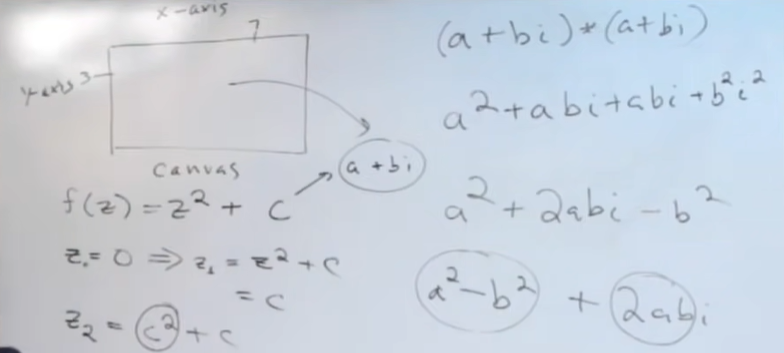 x-axis
7
y-axis 3
canvas
a + bi
f(z) = z² + c
z. = 0 ⇒ z₁ = z² + c
= c
z₂ = c² + c
(a + bi) * (a + bi)
a² + abi + abi + b²i²
a² + 2abi - b²
a² - b² + 2abi